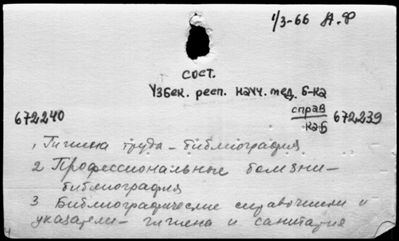 1/3-66 А.Ф
сост.
Узбек. респ. научн. мед. б-ка
справ
672240 каб 672239
1, Гигиена труда - библиография
2 Профессиональные болезни -
библиография
3 Библиографические справочники и
указатели - гигиена и санитария